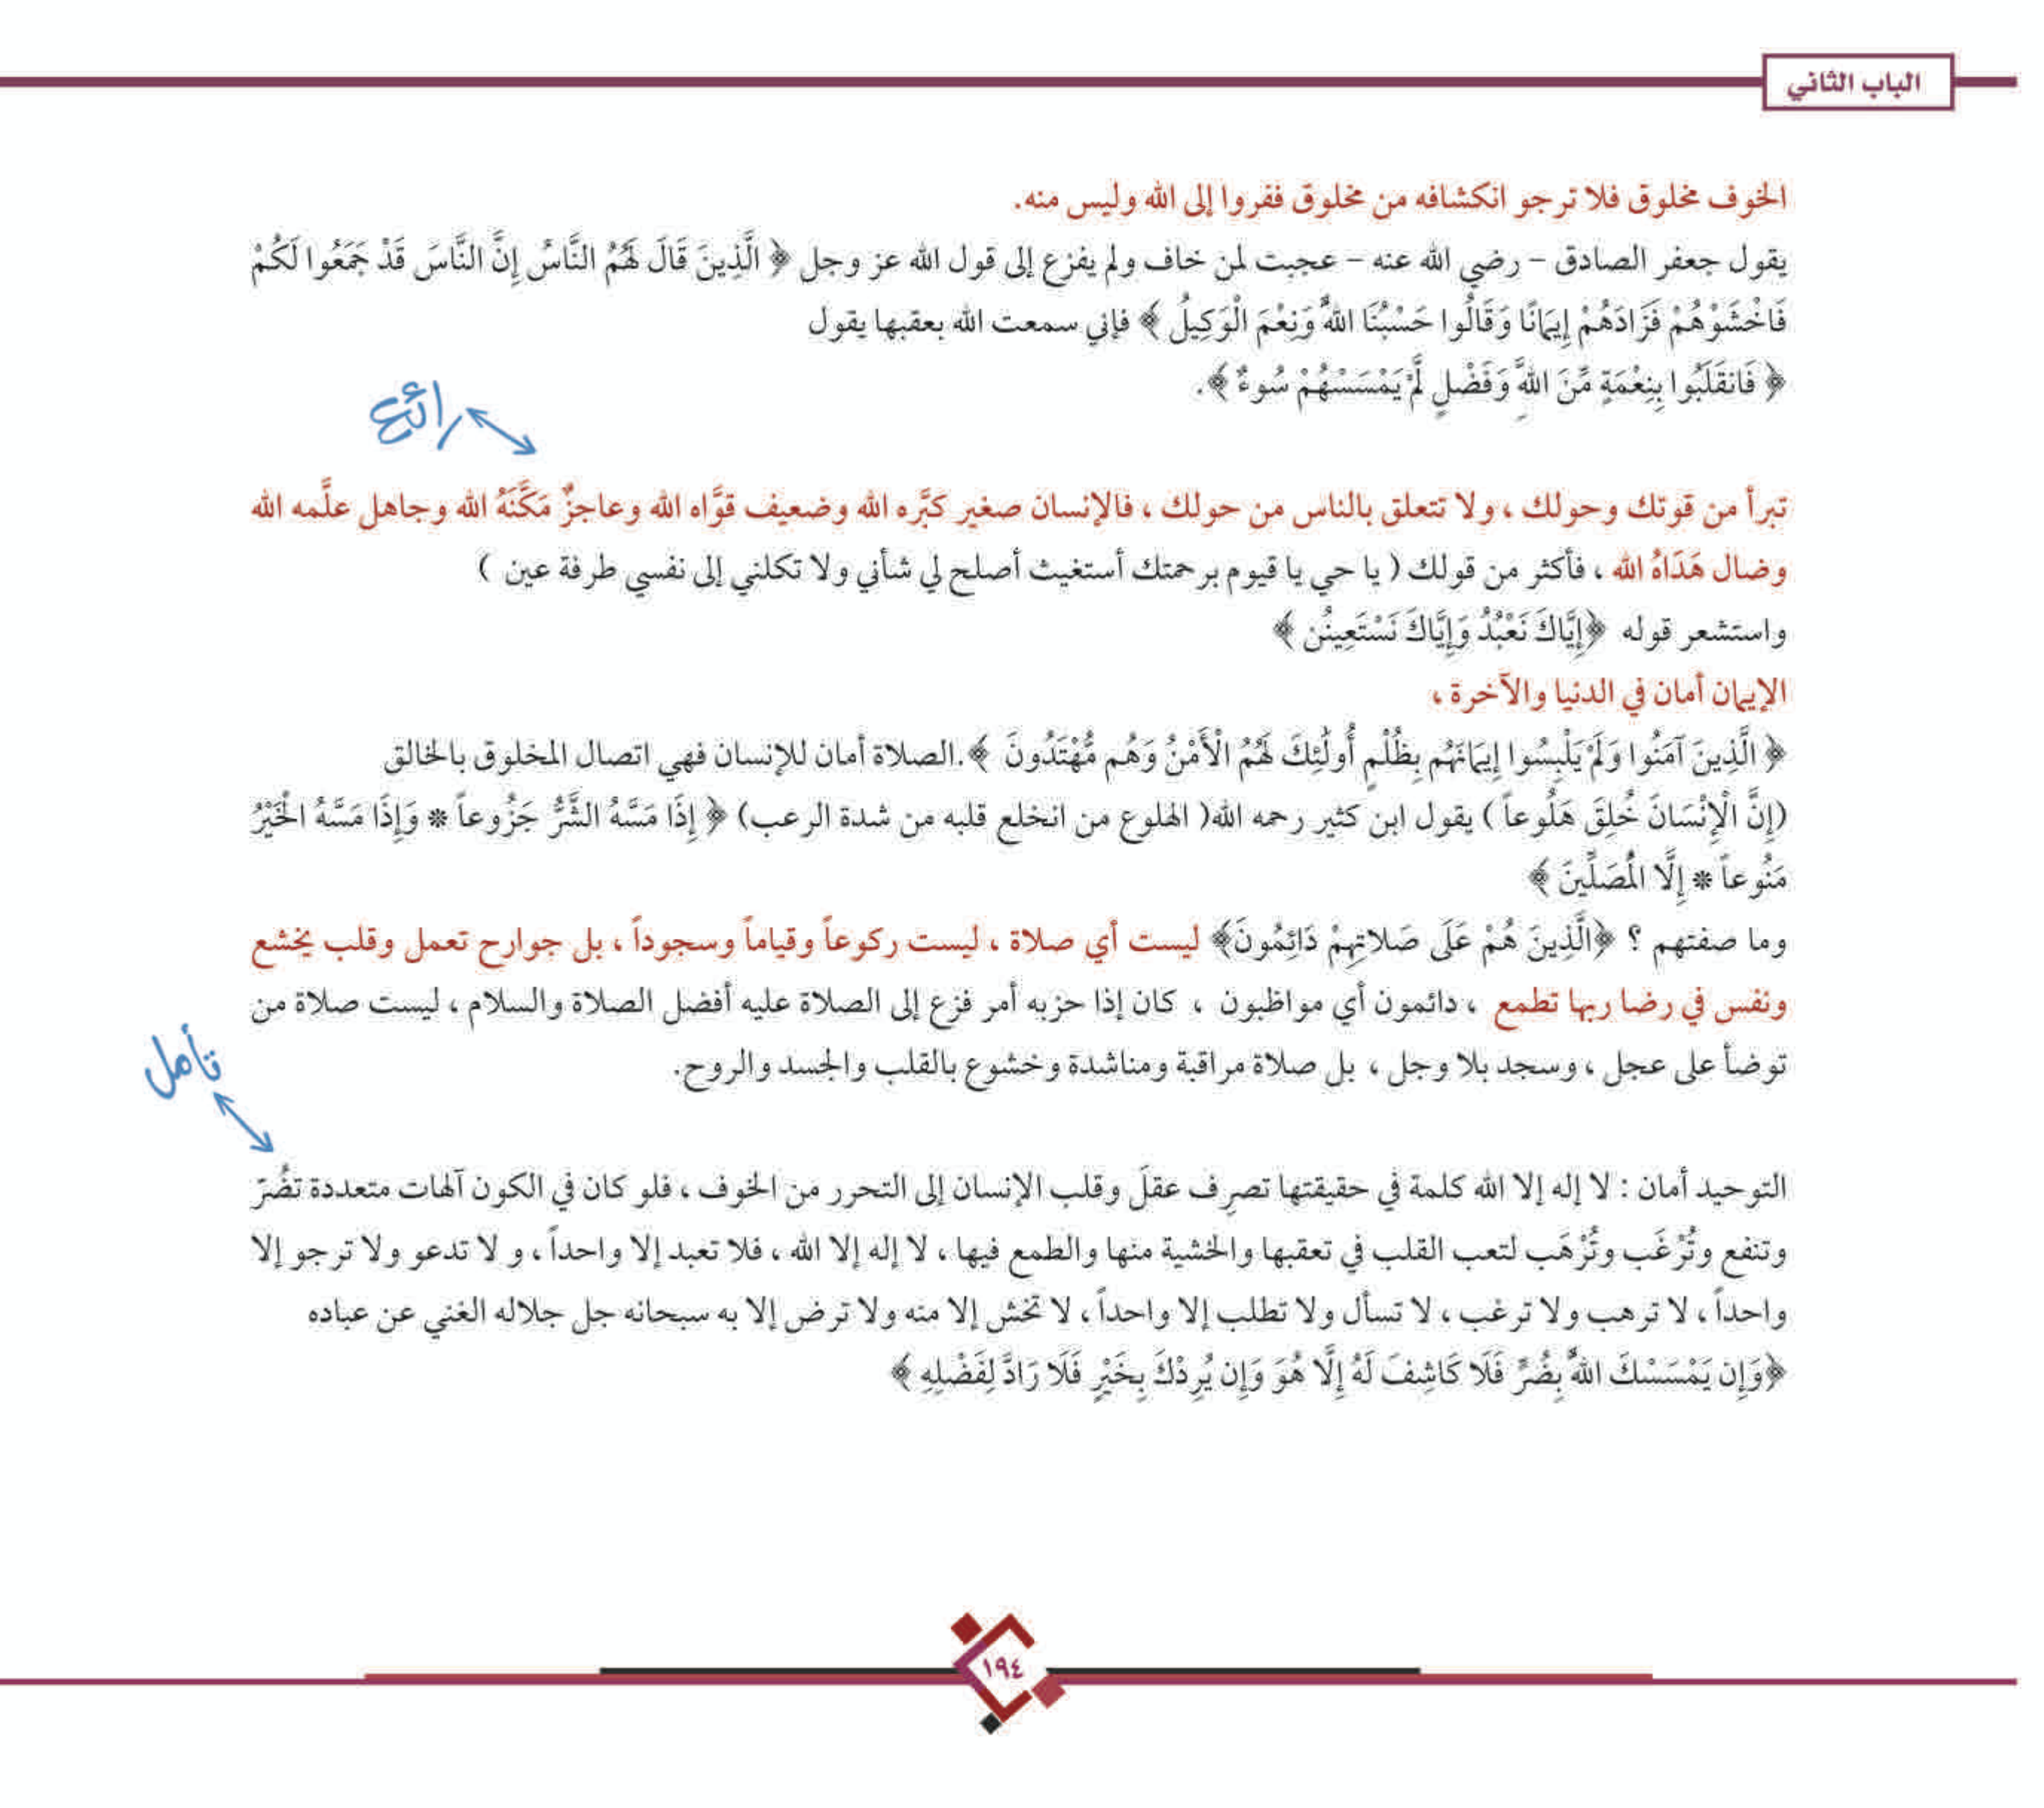 الباب الثاني
الخوف مخلوق فلا ترجو انكشافه من مخلوق ففروا إلى الله وليس منه.
يقول جعفر الصادق – رضي الله عنه – عجبت لمن خاف ولم يفزع إلى قول الله عز وجل ﴿ الَّذِينَ قَالَ لَهُمُ النَّاسُ إِنَّ النَّاسَ قَدْ جَمَعُوا لَكُمْ
فَاخْشَوْهُمْ فَزَادَهُمْ إِيمَانًا وَقَالُوا حَسْبُنَا اللهُ وَنِعْمَ الْوَكِيلُ ﴾ فإني سمعت الله بعقبها يقول
﴿ فَانقَلَبُوا بِنِعْمَةٍ مِّنَ اللهِ وَفَضْلٍ لَّمْ يَمْسَسْهُمْ سُوءٌ ﴾.
رائع
تبرأ من قوتك وحولك ، ولا تتعلق بالناس من حولك ، فالإنسان صغير كبَّره الله وضعيف قوَّاه الله وعاجزٌ مَكَّنَهُ الله وجاهل علَّمه الله
وضال هَدَاهُ الله ، فأكثر من قولك ( يا حي يا قيوم برحمتك أستغيث أصلح لي شأني ولا تكلني إلى نفسي طرفة عين )
واستشعر قوله ﴿إِيَّاكَ نَعْبُدُ وَإِيَّاكَ نَسْتَعِينُن ﴾
الإيمان أمان في الدنيا والآخرة ،
﴿ الَّذِينَ آمَنُوا وَلَمْ يَلْبِسُوا إِيمَانَهُم بِظُلْمٍ أُولَٰئِكَ لَهُمُ الْأَمْنُ وَهُم مُّهْتَدُونَ ﴾.الصلاة أمان للإنسان فهي اتصال المخلوق بالخالق
(إِنَّ الْإِنْسَانَ خُلِقَ هَلُوعاً ) يقول ابن كثير رحمه الله( الهلوع من انخلع قلبه من شدة الرعب) ﴿ إِذَا مَسَّهُ الشَّرُّ جَزُوعاً * وَإِذَا مَسَّهُ الْخَيْرُ
مَنُوعاً * إِلَّا الْمُصَلِّينَ ﴾
وما صفتهم ؟ ﴿الَّذِينَ هُمْ عَلَى صَلاتِهِمْ دَائِمُونَ﴾ ليست أي صلاة ، ليست ركوعاً وقياماً وسجوداً ، بل جوارح تعمل وقلب يخشع
ونفس في رضا ربها تطمع ، دائمون أي مواظبون ، كان إذا حزبه أمر فزع إلى الصلاة عليه أفضل الصلاة والسلام ، ليست صلاة من
توضأ على عجل ، وسجد بلا وجل ، بل صلاة مراقبة ومناشدة وخشوع بالقلب والجسد والروح.
تأمل
التوحيد أمان : لا إله إلا الله كلمة في حقيقتها تصرِف عقلَ وقلب الإنسان إلى التحرر من الخوف ، فلو كان في الكون آلهات متعددة تضُرّ
وتنفع وتُرْغَب وتُرْهَب لتعب القلب في تعقبها والخشية منها والطمع فيها ، لا إله إلا الله ، فلا تعبد إلا واحداً ، و لا تدعو ولا ترجو إلا
واحداً ، لا ترهب ولا ترغب ، لا تسأل ولا تطلب إلا واحداً ، لا تخش إلا منه ولا ترض إلا به سبحانه جل جلاله الغني عن عباده
﴿وَإِن يَمْسَسْكَ اللهُ بِضُرٍّ فَلَا كَاشِفَ لَهُ إِلَّا هُوَ وَإِن يُرِدْكَ بِخَيْرٍ فَلَا رَادَّ لِفَضْلِهِ ﴾
١٩٤